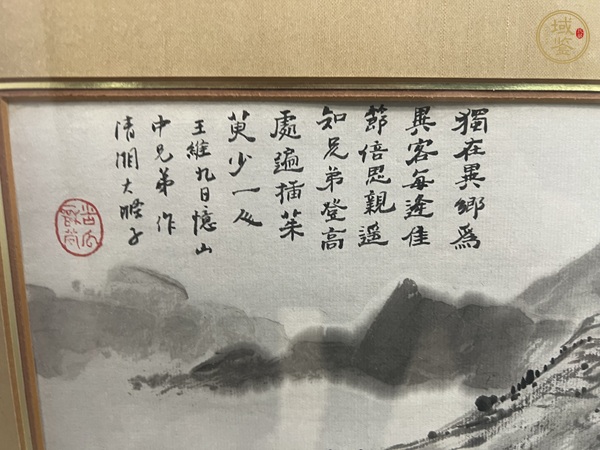 獨在異鄉為
異客每逢佳
節倍思親遥
知兄弟登高
處遍插茱
萸少一人
王維九日憶山
中兄弟作
清湘大滌子
域鉴